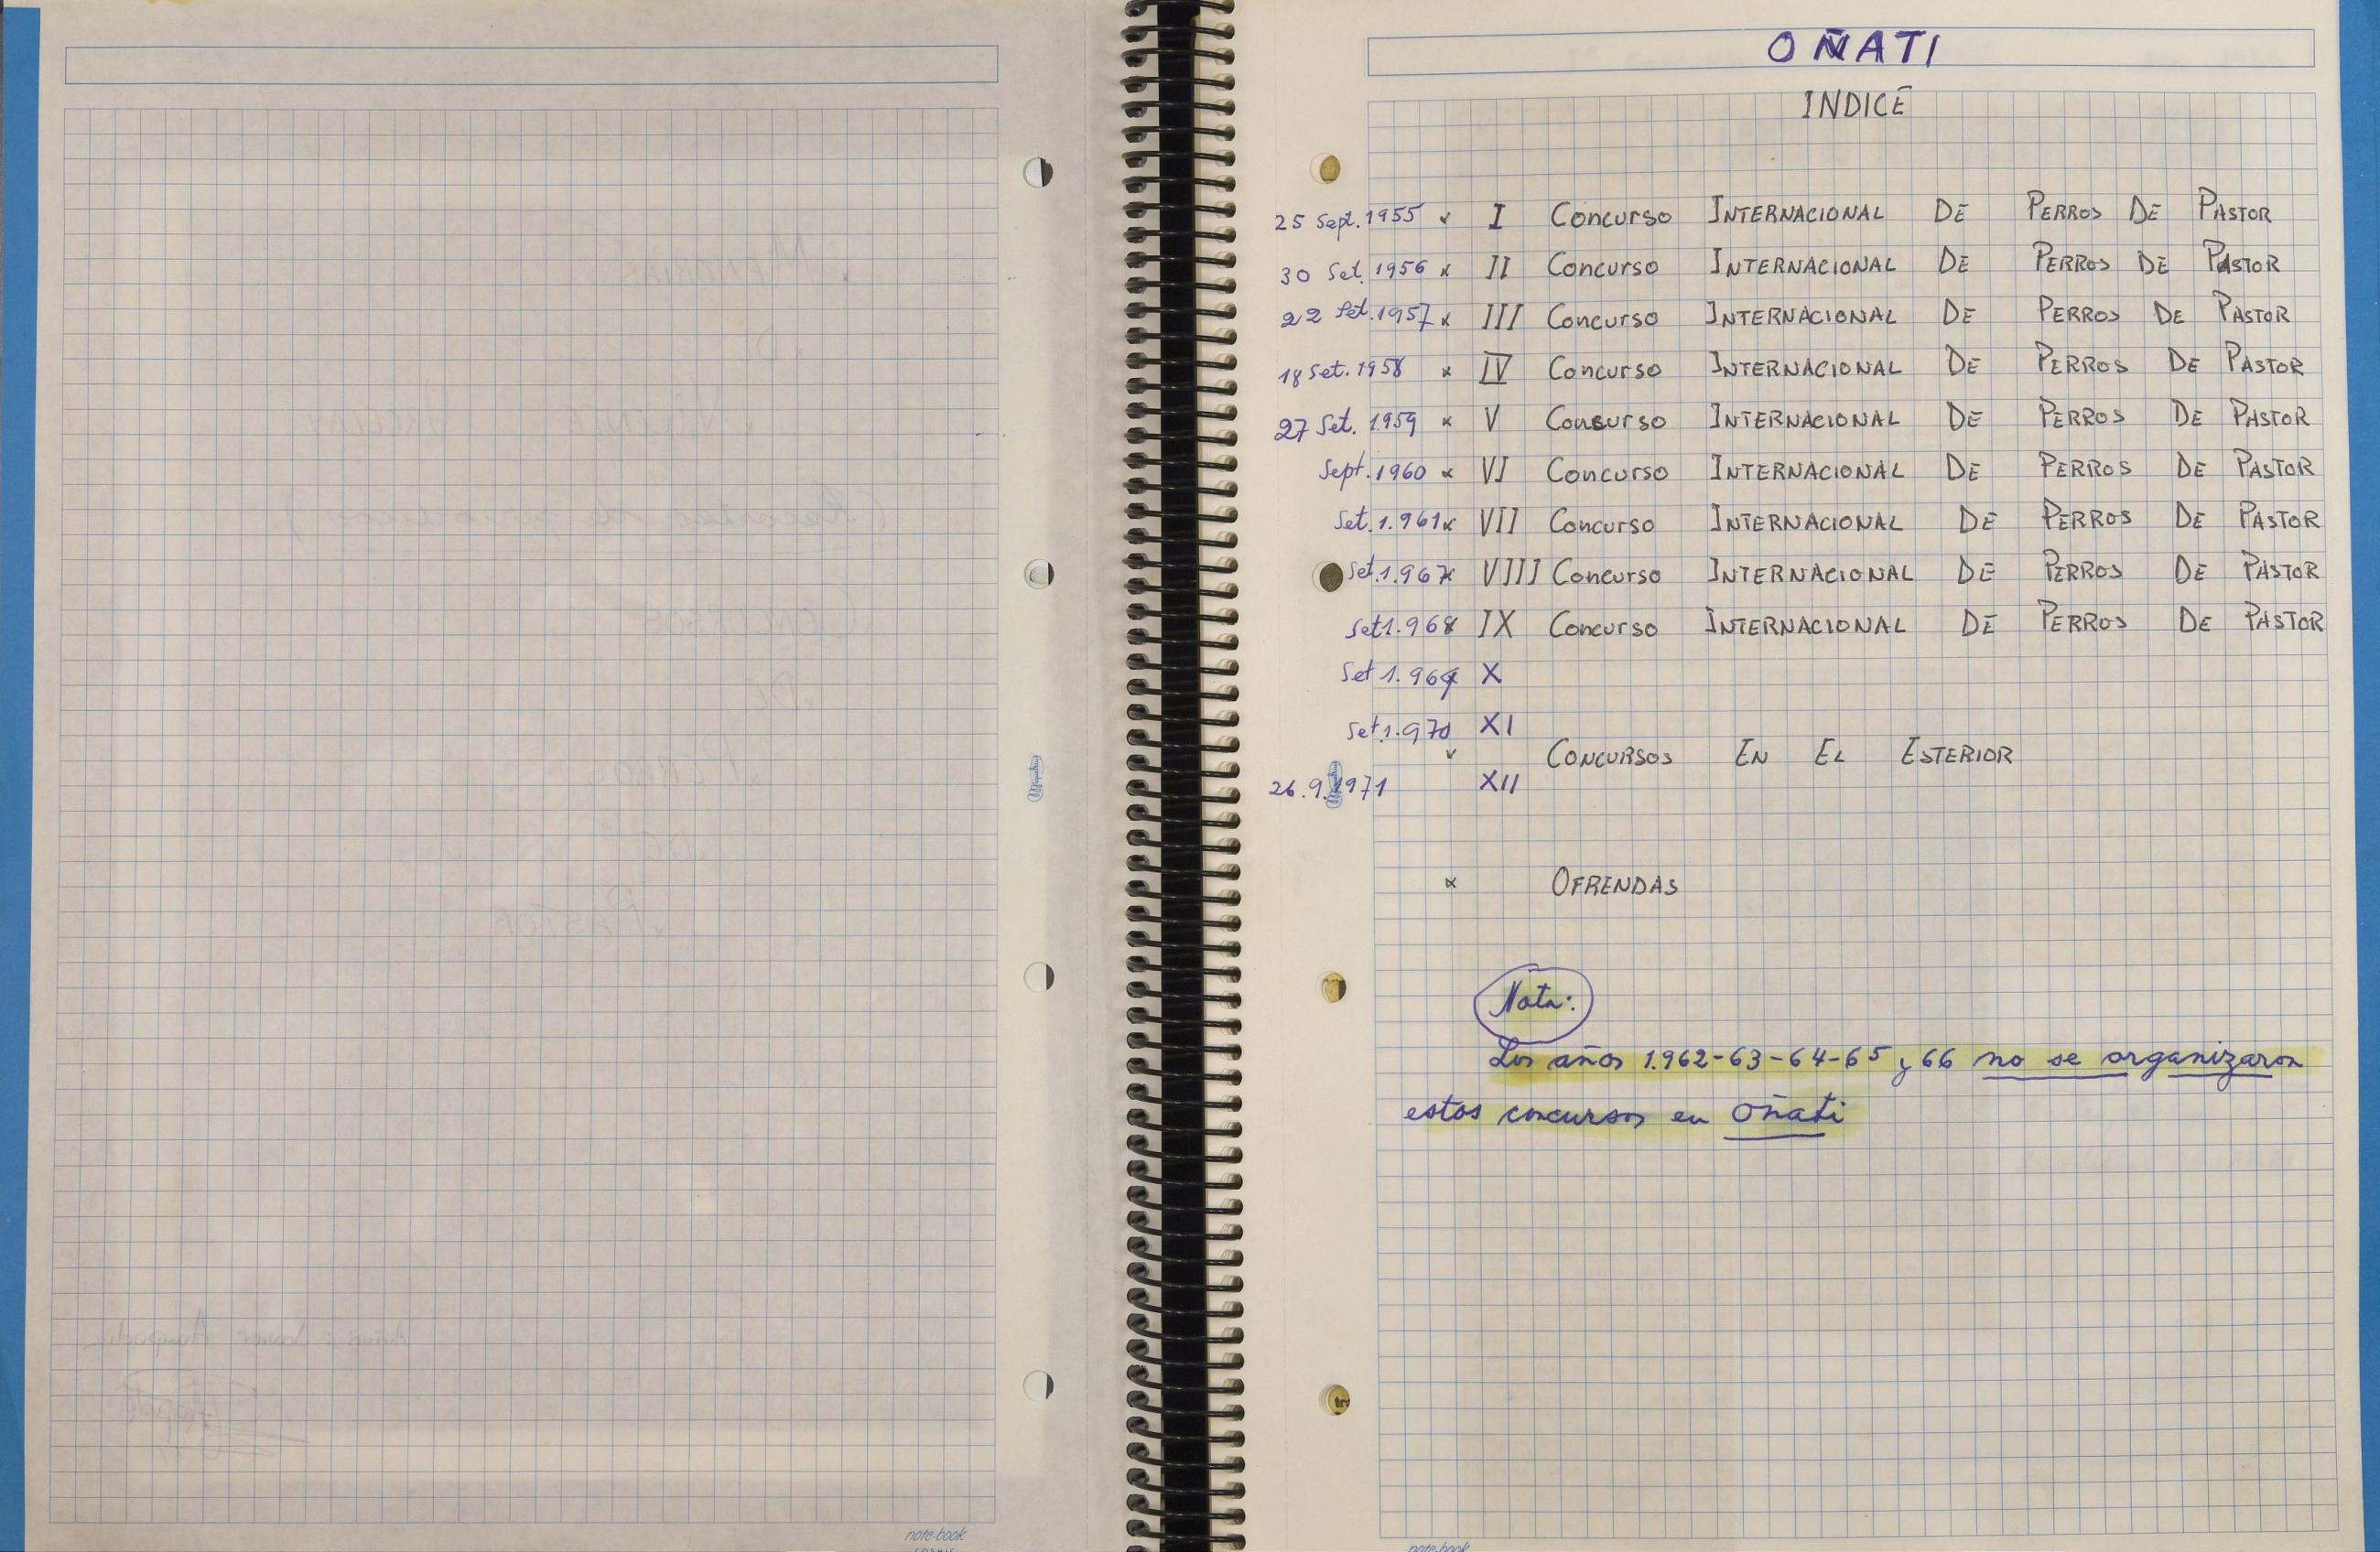 OÑATI
INDICE
25 Sept. 1955 x I Concurso INTERNACIONAL DE PERROS DE PASTOR
30 Set. 1956 x II Concurso INTERNACIONAL DE PERROS DE PASTOR
22 Set. 1957 x III Concurso INTERNACIONAL DE PERROS DE PASTOR
18 Set. 1958 x IV Concurso INTERNACIONAL DE PERROS DE PASTOR
27 Set. 1959 x V Concurso INTERNACIONAL DE PERROS DE PASTOR
Sept. 1960 x VI Concurso INTERNACIONAL DE PERROS DE PASTOR
Set. 1.961 x VII Concurso INTERNACIONAL DE PERROS DE PASTOR
Set. 1.967 x VIII Concurso INTERNACIONAL DE PERROS DE PASTOR
Set 1.968 IX Concurso INTERNACIONAL DE PERROS DE PASTOR
Set 1.969 X
Set. 1.970 XI
x CONCURSOS EN EL ESTERIOR
26.9.1971 XII
x OFRENDAS
Nota:
Los años 1.962-63-64-65 y 66 no se organizaron
estos concursos en Oñati
note-book
note-book